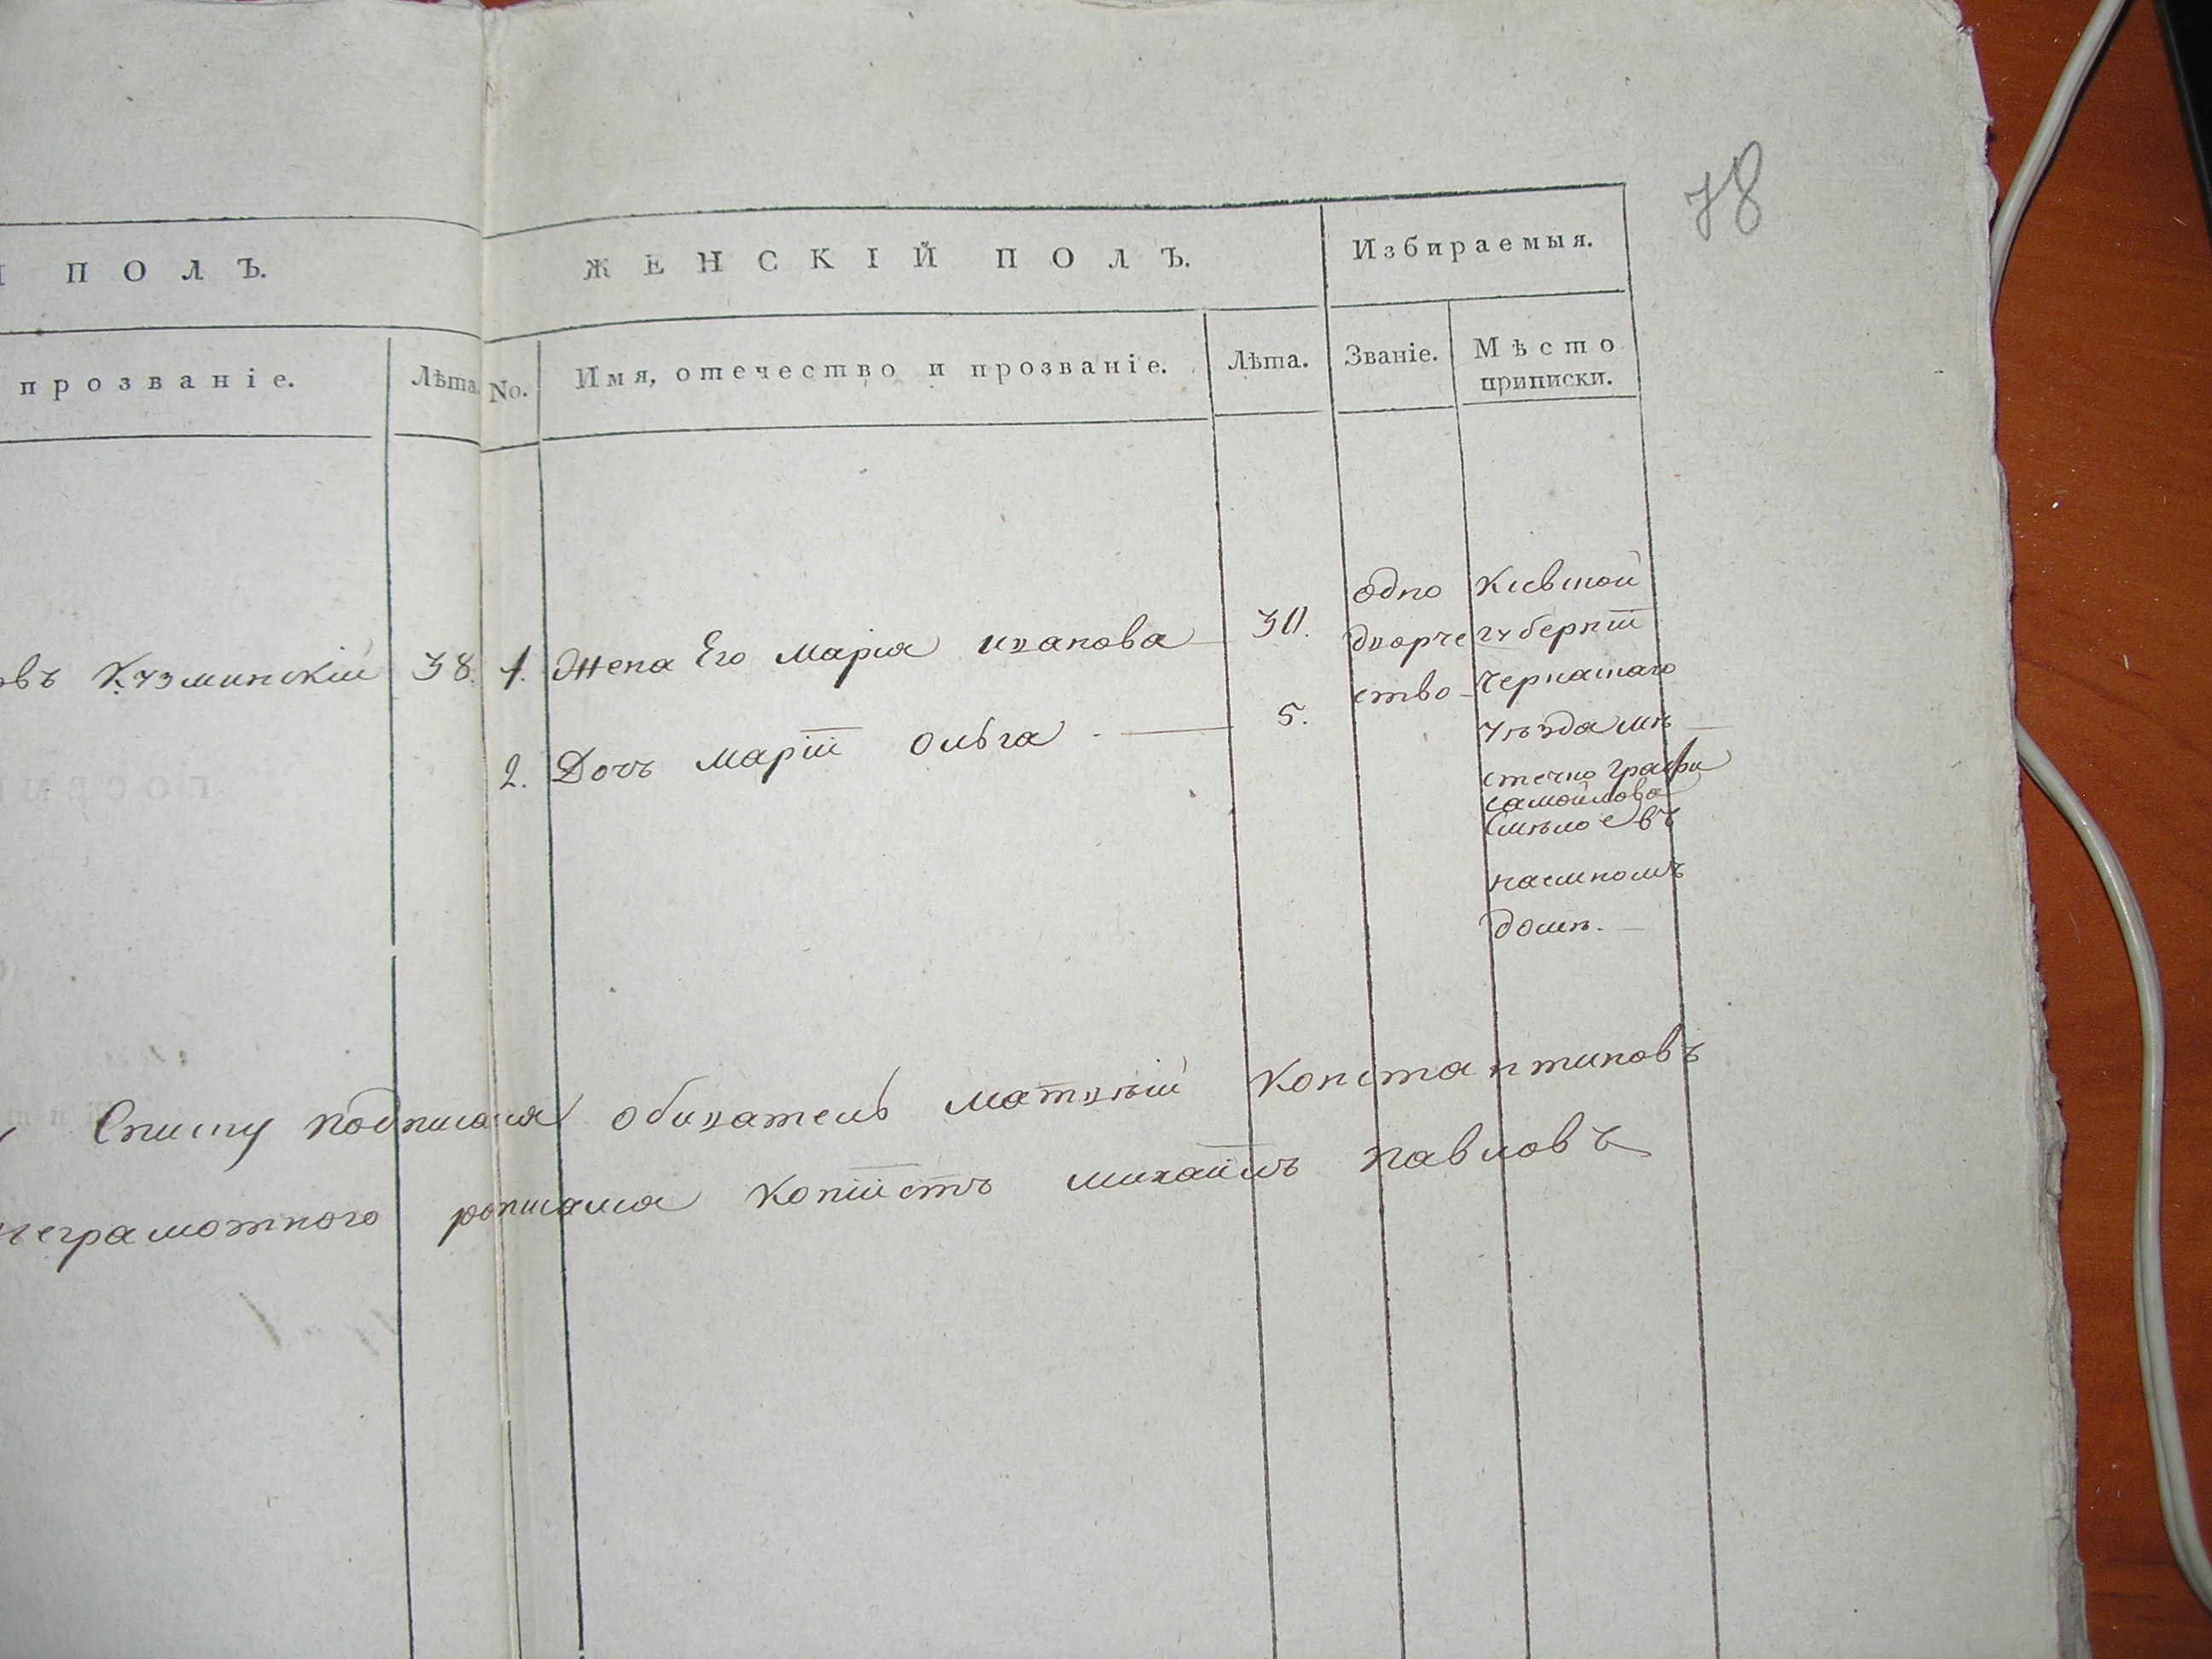 78
ПОЛЪ.
ЖЕНСКІЙ ПОЛЪ.
Избираемыя.
прозваніе.
Лѣта.
No.
Имя, отечество и прозваніе.
Лѣта.
Званіе.
Мѣсто
приписки.
овъ Кузминскій
38.
1.
Жена Его Марія иванова
30.
одно
дворче
ство
Кіевской
губерніи
Черкаскаго
уѣзда мѣ
стечко графа
самойлова
Смѣлое въ
наемномъ
домѣ.
2.
Дочъ маріи Ольга
5.
Списку подписался обиватель матвѣй Константиновъ
неграмотного росписался Копіистъ михаилъ павловъ